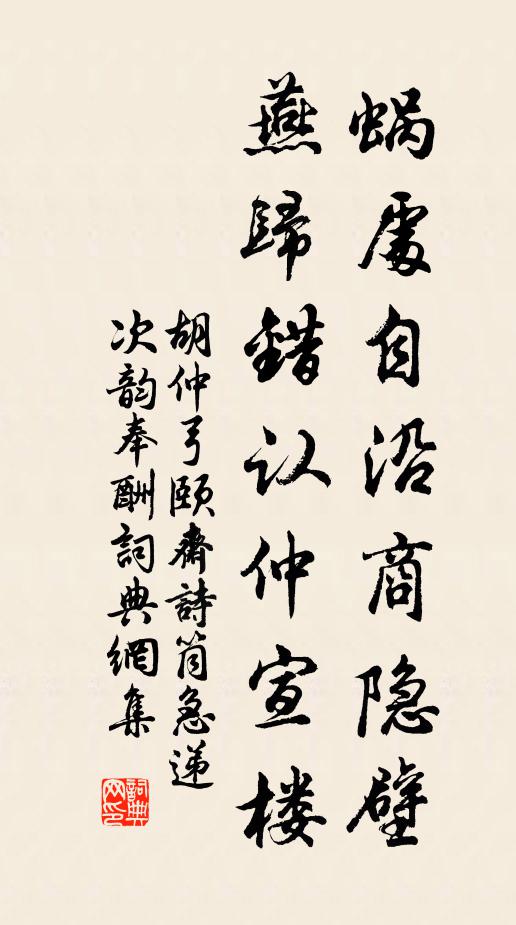 蜗處自沿商隐壁
燕歸錯认仲宣楼
胡仲弓颐齋詩筒急递
次韵奉酬詞典網集
詞典
网印